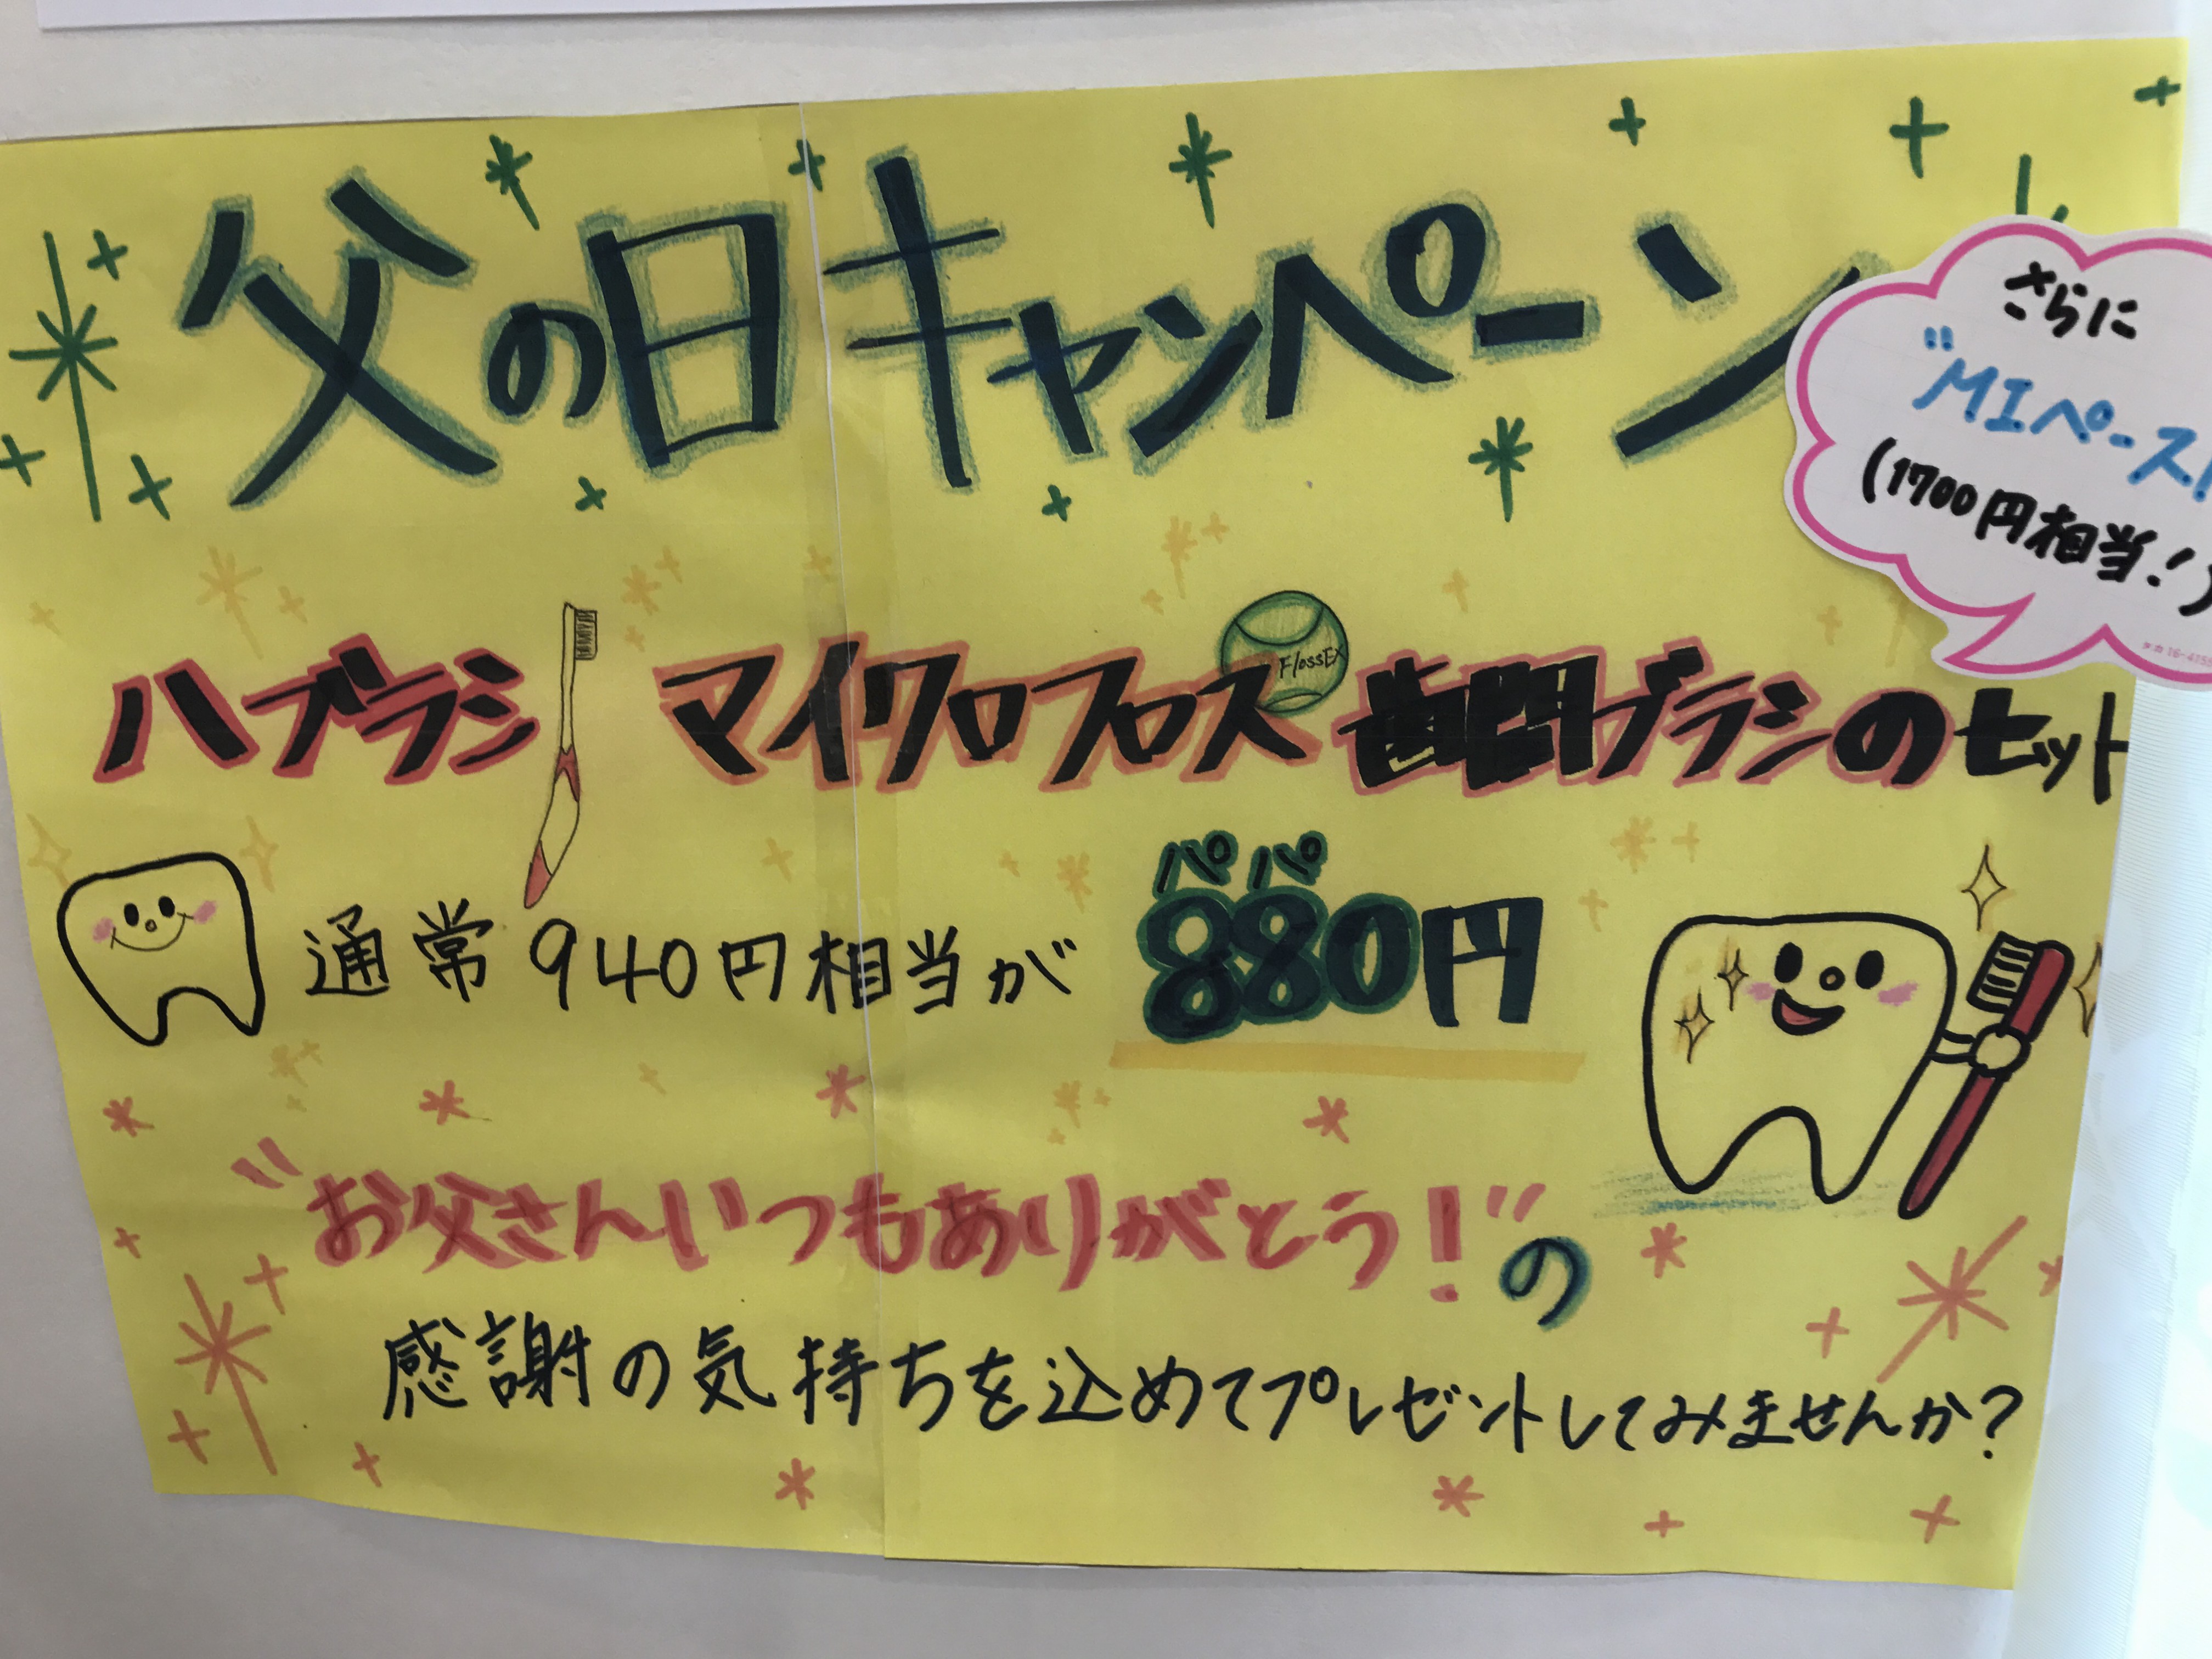 父の日キャンペーン
さらに
"MIペースト
(1700円相当!)
FlossEX
ハブラシ マイクロフロス 歯間ブラシのセット
パパ
通常940円相当が 880円
"お父さんいつもありがとう!"の
感謝の気持ちを込めてプレゼントしてみませんか?